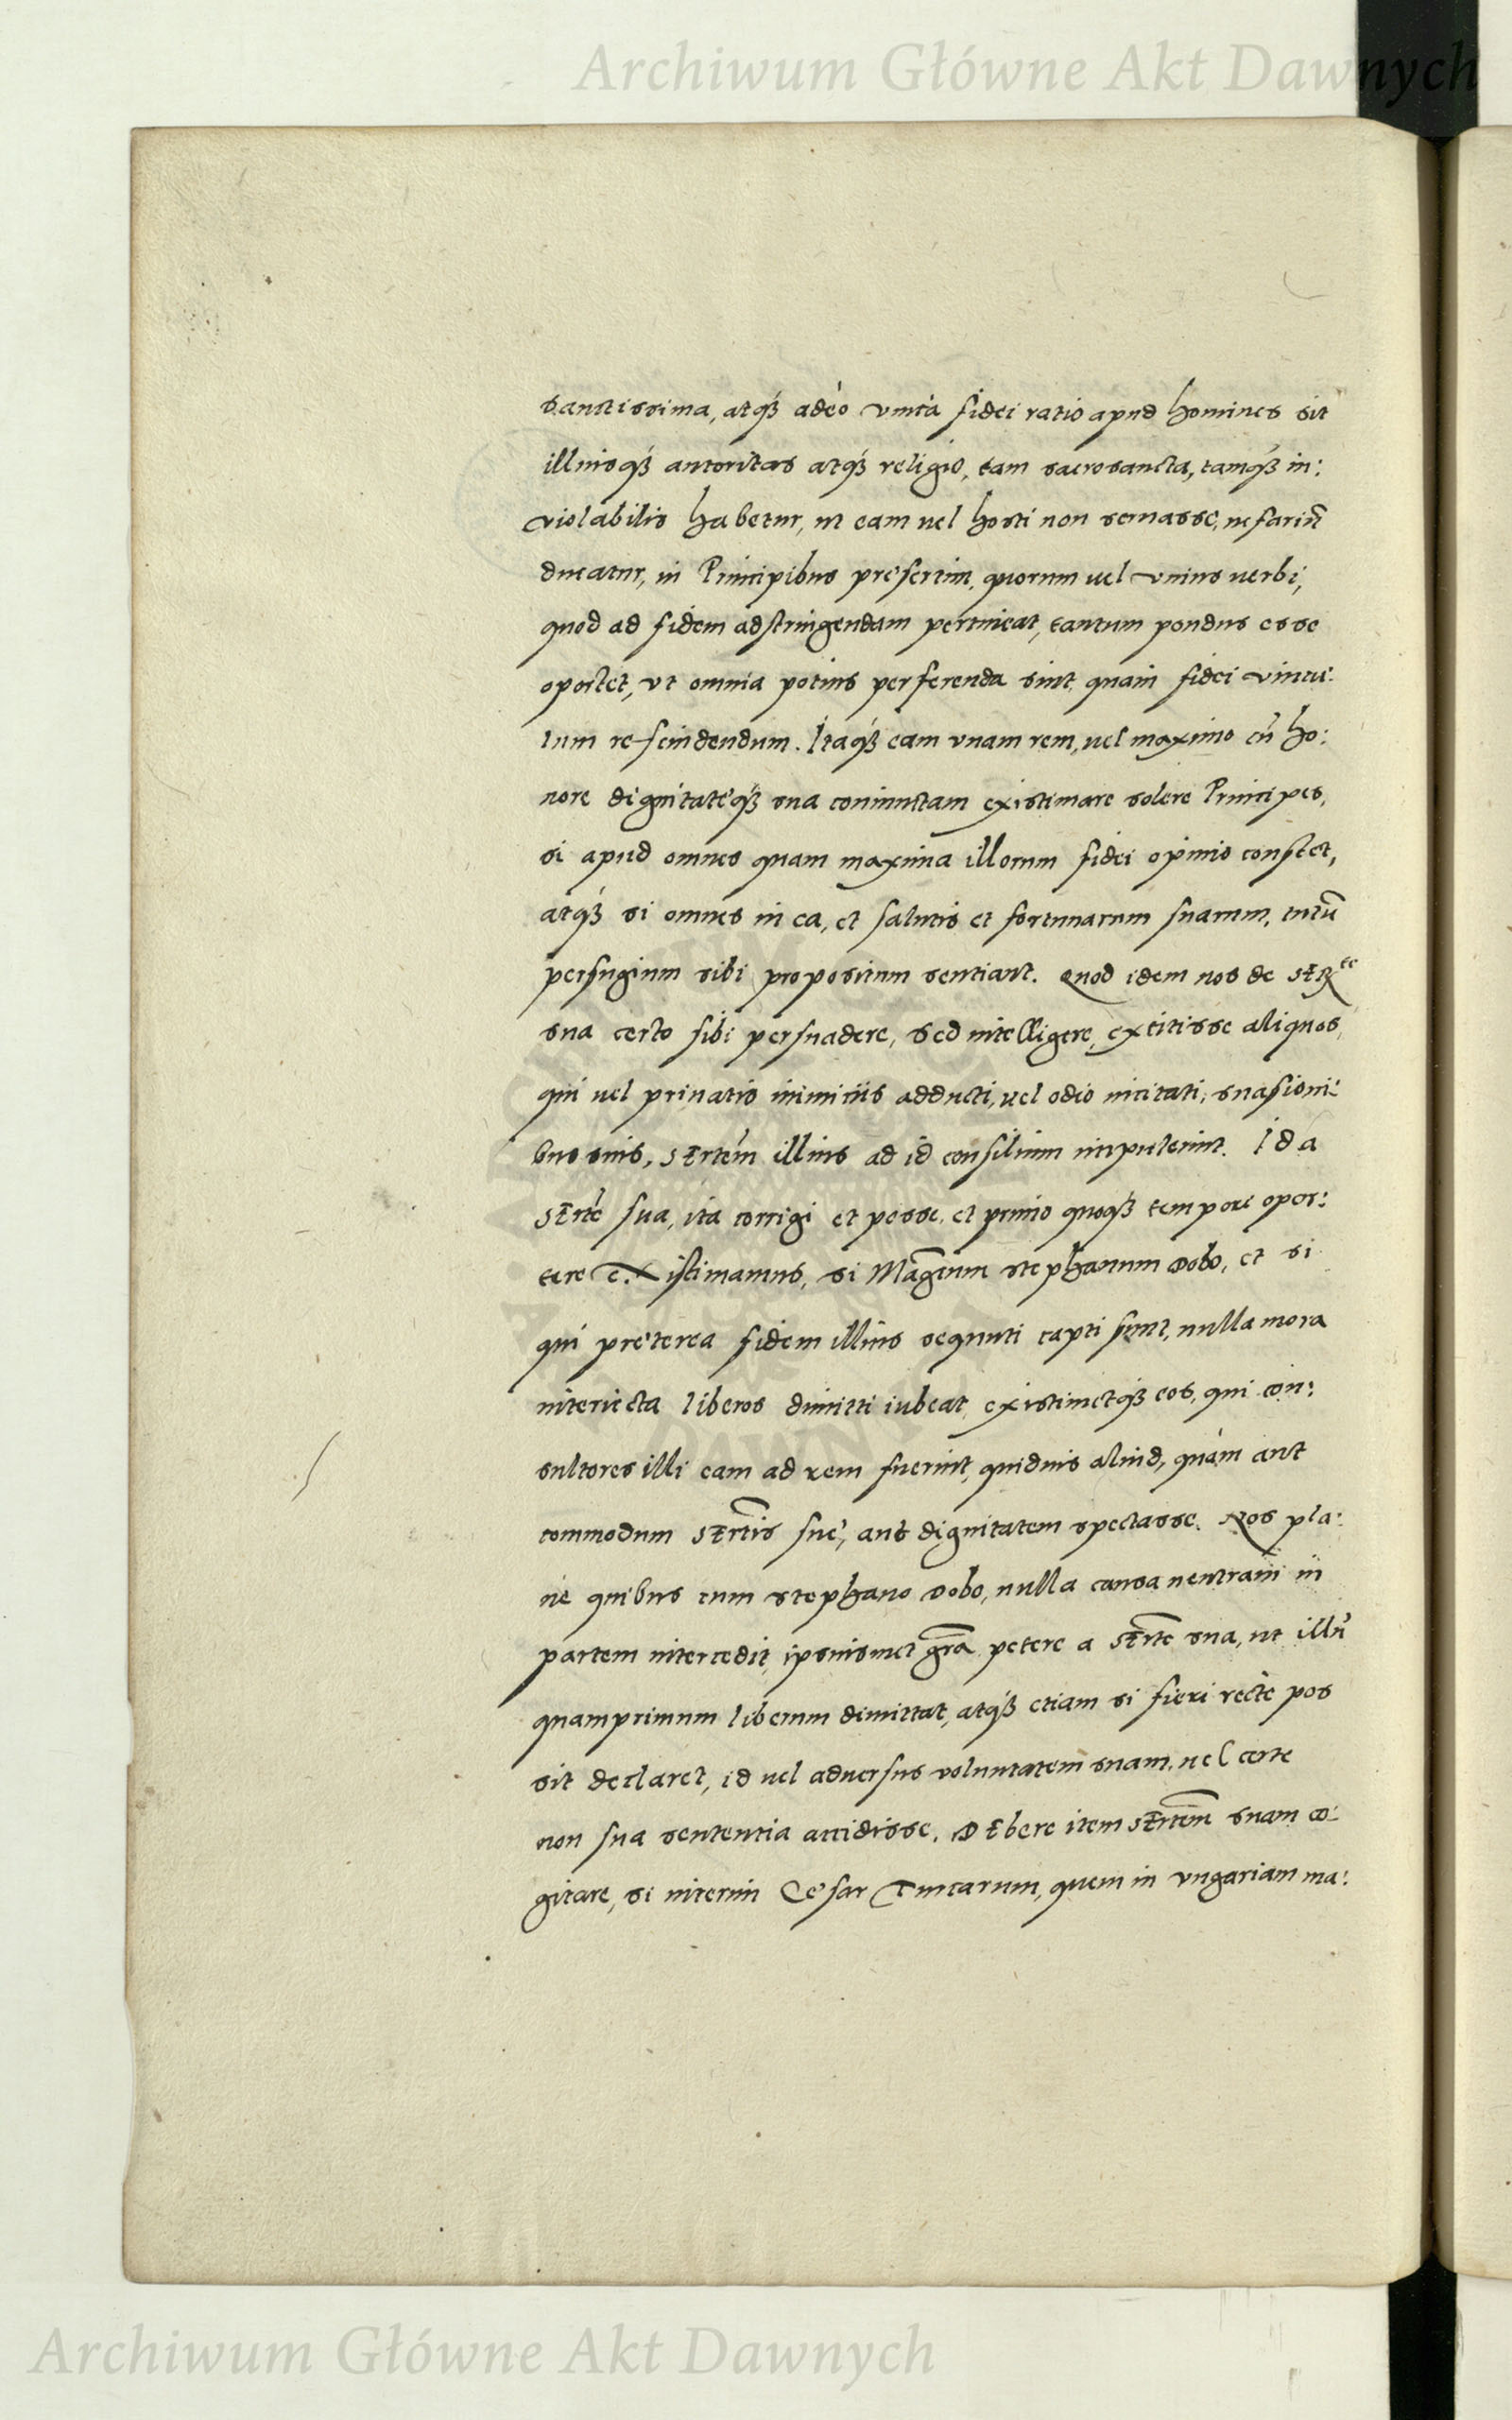 Archiwum Główne Akt Dawnych
sanctissima, atqꝫ adeò vnica fidei ratio apud homines sit
illiusqꝫ autoritas atqꝫ religio, tam sacrosancta, tamqꝫ in:
violabilis habetur, ut eam uel hosti non seruasse, nefariũ
ducatur, in Principibus presertim, quorum uel vnius uerbi,
quod ad fidem adstringendam pertineat, tantum pondus esse
oportet, vt omnia potius perferenda sint, quam fidei vincu:
lum rescindendum. Itaqꝫ eam vnam rem, uel maximo cũ ho:
nore dignitateqꝫ sua coniunctam existimare solere Principes,
si apud omnes quam maxima illorum fidei opinio constet,
atqꝫ si omnes in ea, et salutis et fortunarum suarum, tutũ
perfugium sibi propositum sentiant. Quod idem nos de SER^te
sua certo sibi persuadere, sed intelligere, extitisse aliquos,
qui uel priuatis inimiciis adducti, uel odio incitati, suasioni:
bus suis, SErtem illius ad id consilium impulerint. Id a
SErte sua, ita corrigi et posse, et primo quoqꝫ tempore opor:
tere existimamus, si Magcum Stephanum Dobo, et si
qui preterea fidem illius sequuti capti sunt, nulla mora
interiecta liberos dimitti iubeat, existimetqꝫ eos, qui con:
sultores illi eam ad rem fuerint, quiduis aliud, quàm aut
commodum SErtis sue, aut dignitatem spectasse. Nos pla:
ne quibus cum Stephano Dobo, nulla causa neutram in
partem intercedit, ipsiusmet gra petere a SErte sua, ut illũ
quamprimum liberum dimittat, atqꝫ etiam si fieri recte pos
sit declaret, id uel aduersus voluntatem suam, uel certe
non sua sententia accidisse. DEbere item SErtem suam co:
gitare, si interim Cesar Turcarum, quem in vngariam ma:
Archiwum Główne Akt Dawnych